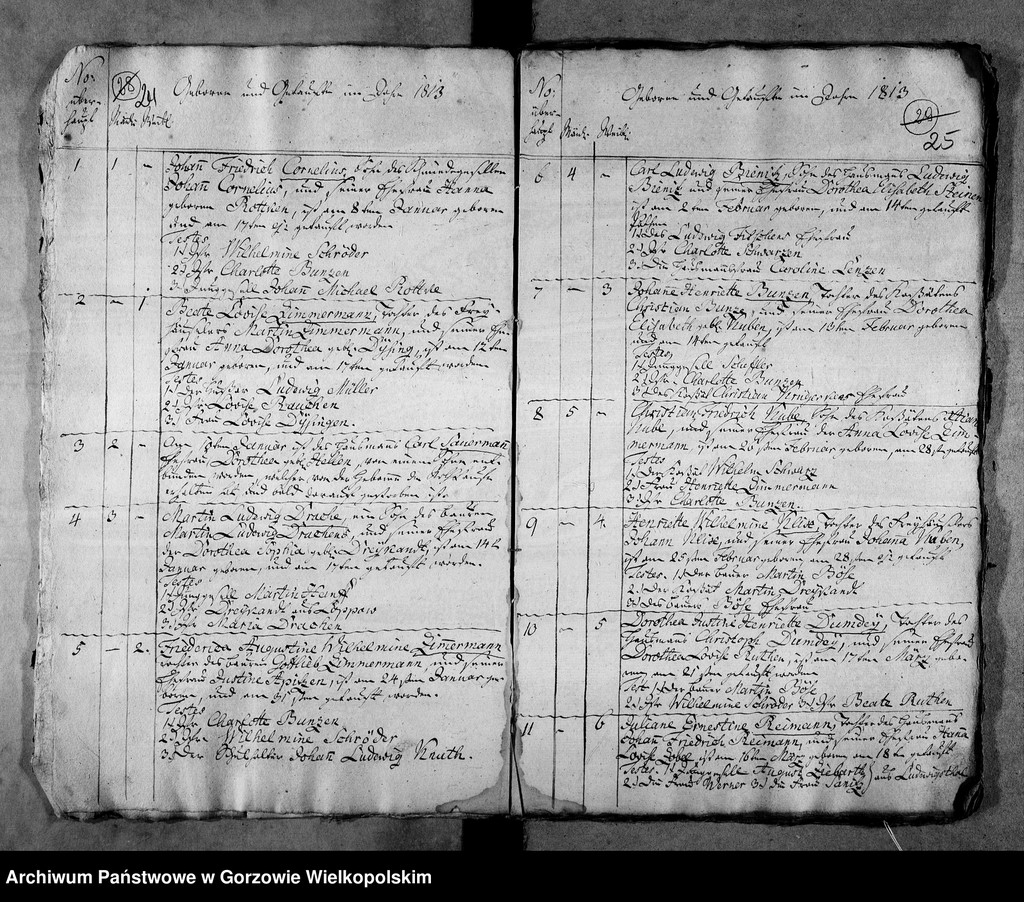 No: über- haupt
28 24
Männl: Weibl:
Geborne und Getaufte im Jahre 1813
1 1 – Johañ Friedrich Cornelius, Sohn des Schmiedegesellen
Johañ Cornelius, und seiner Ehefrau Hanna
gebornen Rothen, ist am 8ten Januar geboren
und am 17ten getauft worden
Testes
1) Jgfr Wilhelmine Schröder
2) Jgfr Charlotte Bunzen
3) Junggeselle Johañ Michael Rothe
2 – 1 Beate Lovise Zimmermann, Tochter des Frey-
häuslers Martin Zimmermann, und seiner Ehe-
frau Anna Dorothea geb: Düsing, ist am 12ten
Januar geboren, und am 17ten getauft worden
Testes
1) Der Ludwig Müller
2) Jgfr Lovise Rauchen
3) Frau Lovise Düsingen.
3 2 – Januar ist des Hausmanns Carl Sauermañ
Ehefrau Dorothea geb: Hellen, von einem Sohn ent-
bunden worden, welcher von der
erhalten hat und bald darauf gestorben ist.
4 3 – Martin Ludwig Drache, ein Sohn des bauern
Martin Ludwig Drachens, und seiner Ehefrau
der Dorothea Sophia geb: Dreykandt, ist am 14t
Januar geboren, und am 17ten getauft worden.
Testes
1) Junggeselle Martin Hanff
2) Jgfr Dreykandt aus Loppow
3) Jgfr Maria Drachen
5 – 2. Friederica Augustine Wilhelmine Zimmermann
tochter des bauern Gottlieb Zimmermann, und seiner
Ehefrau Justine Apitzen, ist am 24sten Januar ge-
boren, und am 31sten getauft worden.
Testes
1) Jgfr Charlotte Bunzen
2) Jgfr Wilhelmine Schröder
3) Der Johañ Ludwig Knuth.
No: über- haupt
Männl: Weibl:
Geborne und Getaufte im Jahre 1813
28
25
6 4 – Carl Ludwig Bienik, Sohn des Ludewig
Bienik und seiner Ehefrau Dorothea Elisabeth
ist am 2ten Februar geboren, und am 14ten getauft
1) Des Ludwig Ehefrau
2) Jgfr Charlotte Schwarzen
3) Die Caroline Lenzen
7 – 3 Johañe Henriette Bunzen, Tochter des Kossäthens
Christian Bunze, und seiner Ehefrau Dorothea
Elisabeth geb: Nuben, ist am 10ten Februar geboren
und am 14ten getauft
Testes
1) Junggeselle Scheffler
2) Jgfr Charlotte Bunzen
3) Des Kossät Christian Ehefrau
8 5 – Christian Friedrich Nube Sohn des Kossäthens
Nube, und seiner Ehefrau der Anna Lovise Zim-
mermann ist am 20sten Februar geboren, am 28. getauft
Testes
1) Der Kossät Wilhelm Schwarz
2) Frau Henriette Zimmermann
3) Jgfr Charlotte Bunzen.
9 – 4. Henriette Wilhelmine Klix, Tochter des Freyhäuslers
Johann Klix, und seiner Ehefrau Johaña Nuben,
ist am 25sten Februar geboren am 28sten getauft
Testes. 1) Der bauer Martin Böse
2) Der Kossät Martin Dreykandt
3) Des bauer Böse Ehefrau
10 – 5 Dorothea Justine Henriette Dumdey, Tochter des
Hausmanns Christoph Dumdey, und seiner Ehefrau
Dorothea Lovise Ruthen, ist am 17ten März gebo-
ren, am 21sten getauft worden
Test 1) Der bauer Martin Böse
2) Jgfr Wilhelmine Schröder 3) Jgfr Beate Ruthen
11 – 6 Juliane Ernestine Reimann, Tochter des
Johañ Friedrich Reimann, und seiner Ehefrau Anna
Lovise ist am 16ten März geboren am 18t getauft
Testes. 1) Junggeselle August Liebarth
2) Die Frau Werner 3) Die Frau aus Ludwigsthal
Archiwum Państwowe w Gorzowie Wielkopolskim